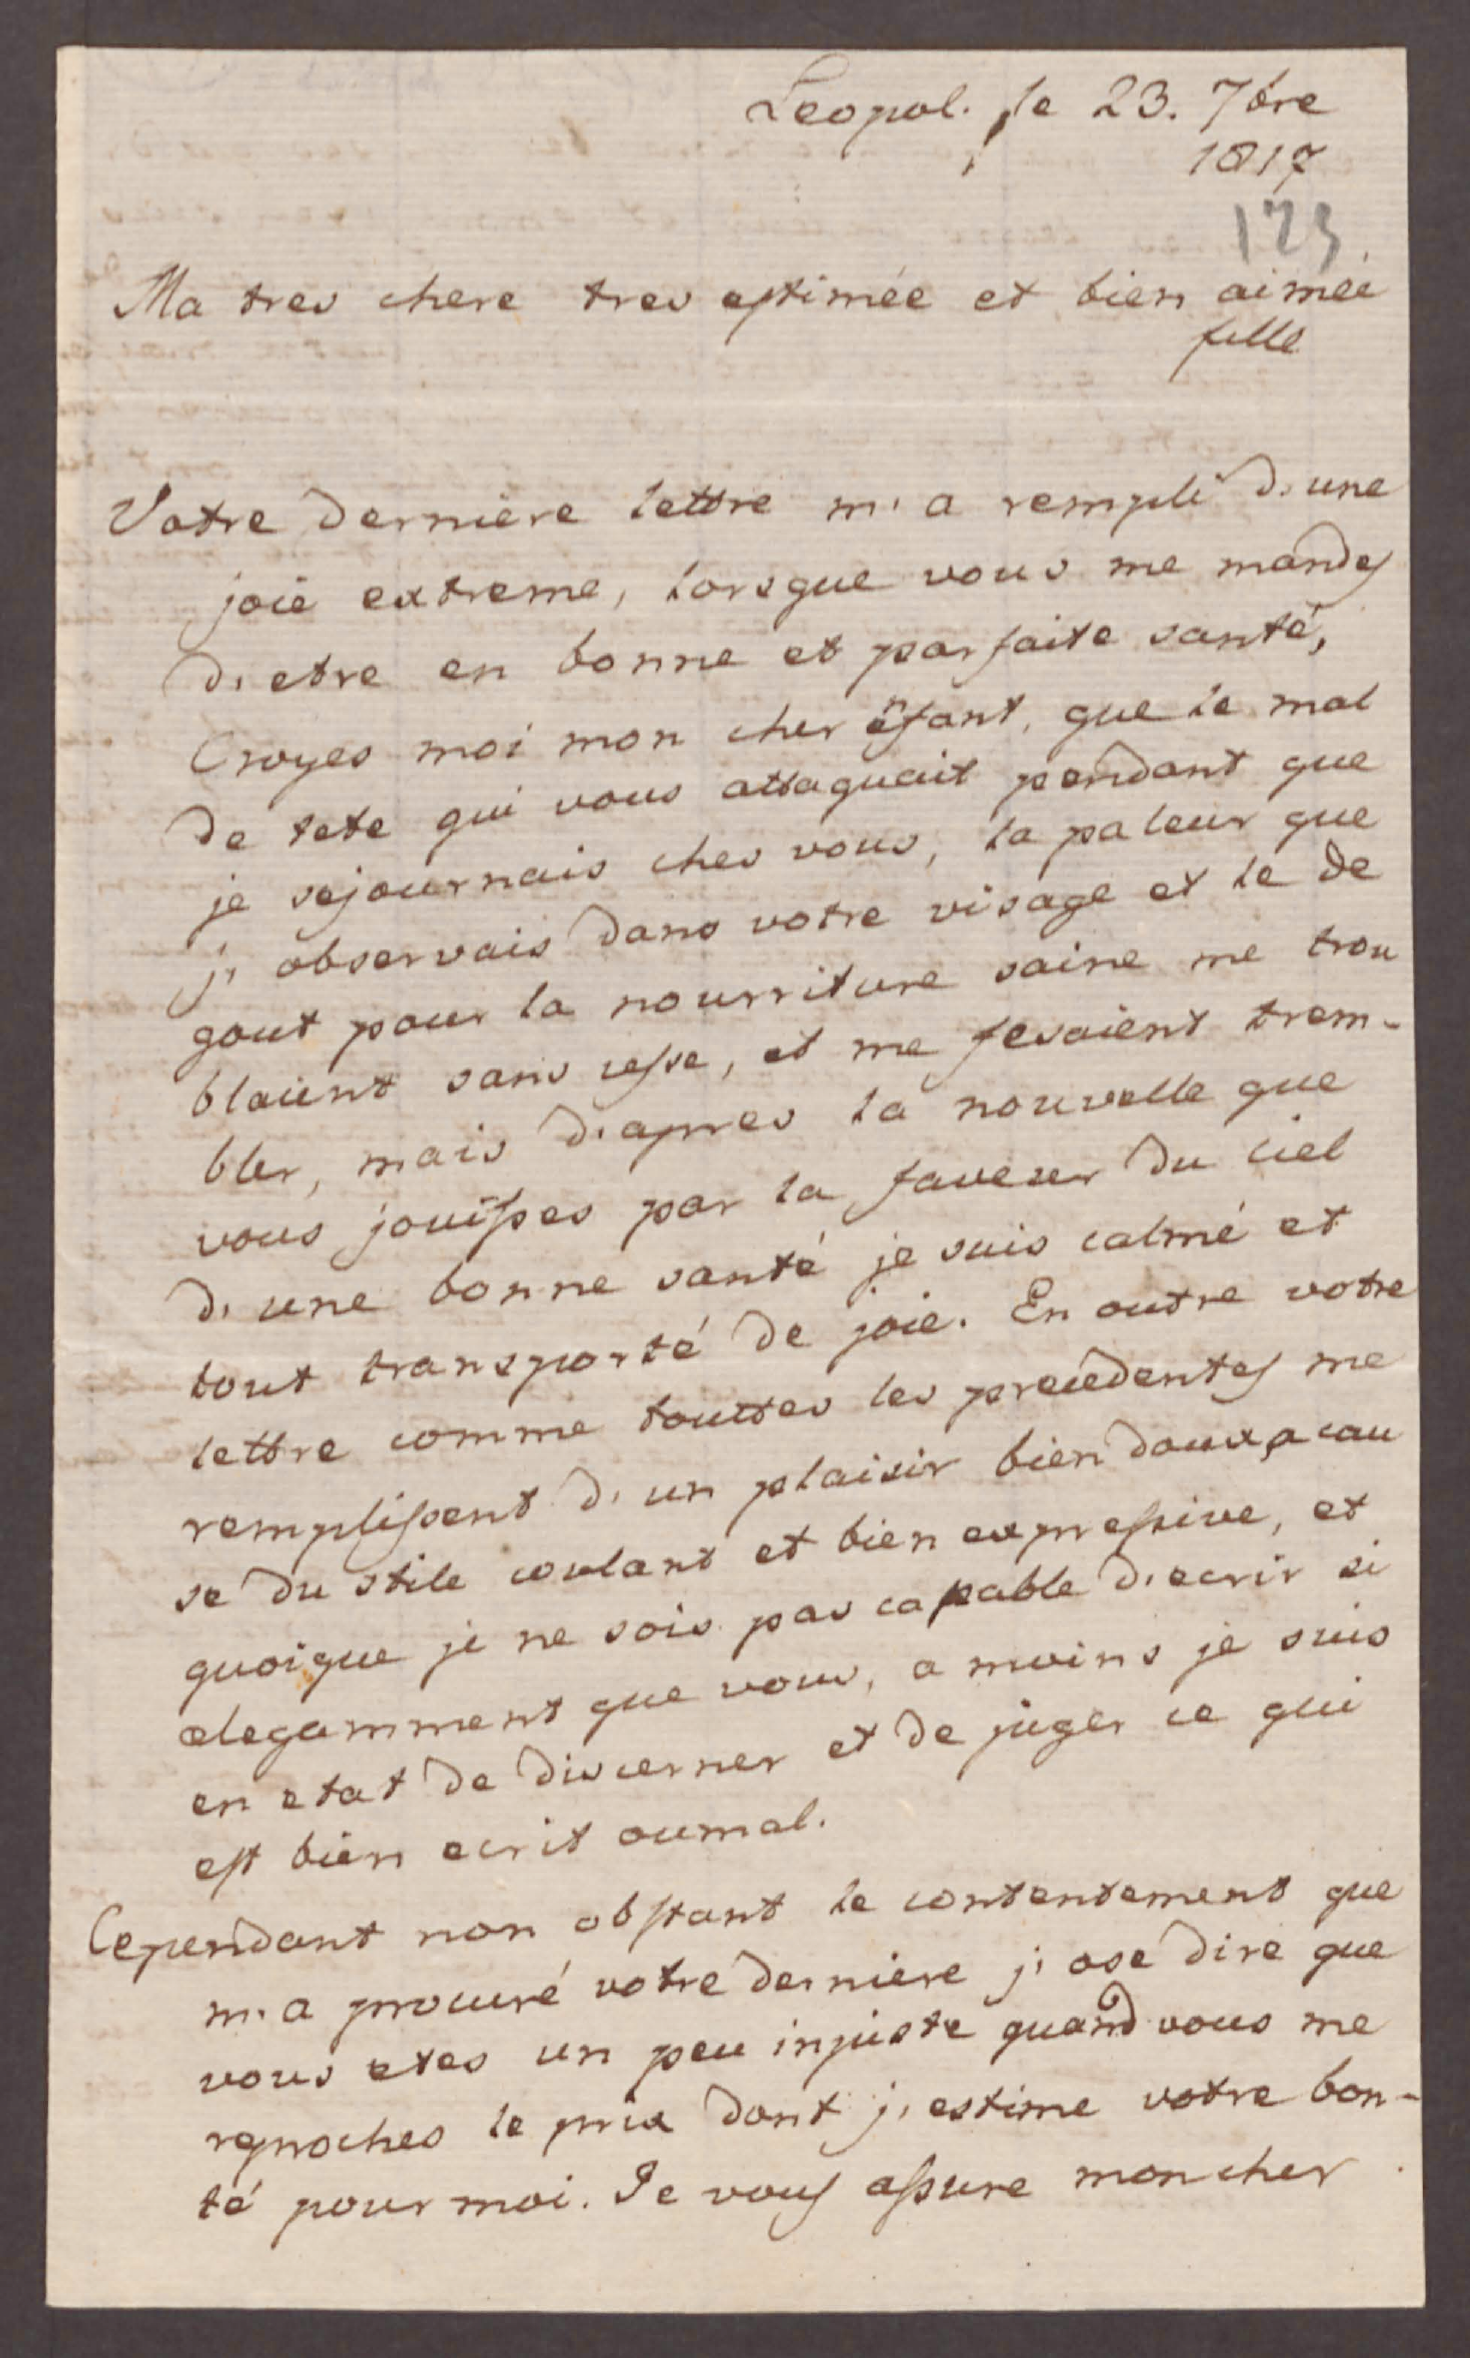 Leopol. le 23. 7bre
1817
123
Ma tres chere tres estimée et bien aimée
fille
Votre derniere lettre m'a rempli d'une
joie extreme, lorsque vous me mandes
d'etre en bonne et parfaite santé,
Croyes moi mon cher enfant, que le mal
de tete qui vous attaquait pendant que
je sejournais ches vous, la paleur que
j'observais dans votre visage et le de
gout pour la nourriture saine me trou
blaient sans cesse, et me fesaient trem-
bler, mais d'apres la nouvelle que
vous jouisses par la faveur du ciel
d'une bonne santé je suis calmé et
tout transporté de joie. En outre votre
lettre comme touttes les precedentes me
remplissent d'un plaisir bien doux a cau
se du stile coulant et bien expressive, et
quoique je ne sois pas capable d'ecrir si
elegamment que vous, a moins je suis
en etat de discerner et de juger ce qui
est bien ecrit ou mal.
Cependant non obstant le contentement que
m'a procuré votre derniere j'ose dire que
vous etes un peu injuste quand vous me
reproches le prix dont j'estime votre bon-
té pour moi. Je vous assure mon cher